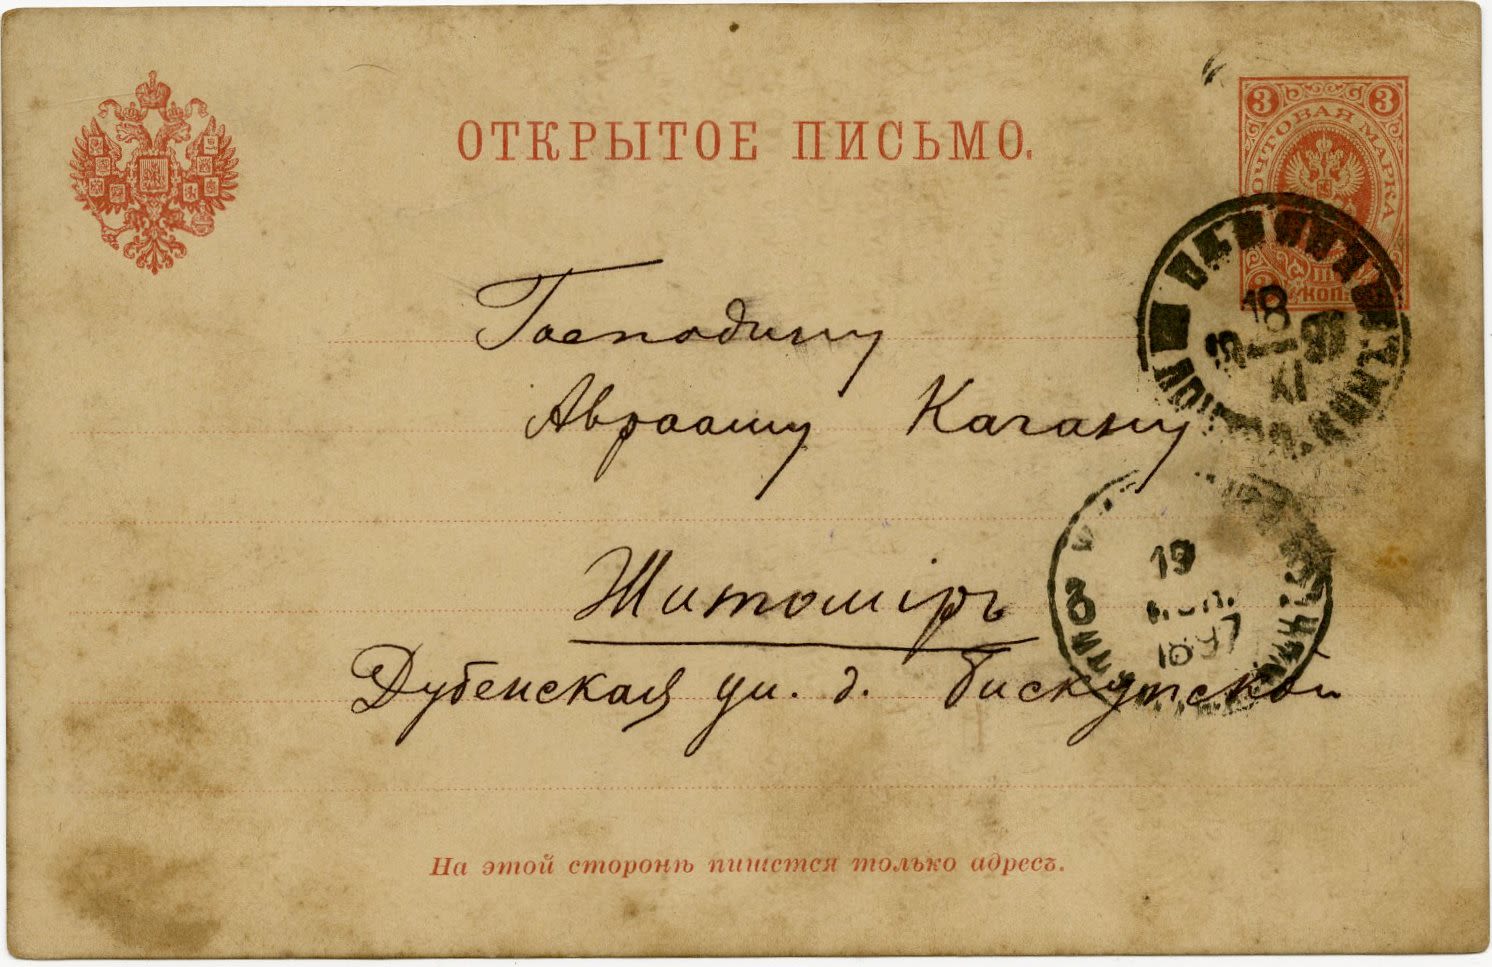 ОТКРЫТОЕ ПИСЬМО.
3 3
ПОЧТОВАЯ МАРКА
КОП.
18
XI
Господину
Аврааму Кагану
19
1897
Житоміръ
Дубенская ул. д. Бискупской
На этой сторонѣ пишется только адресъ.